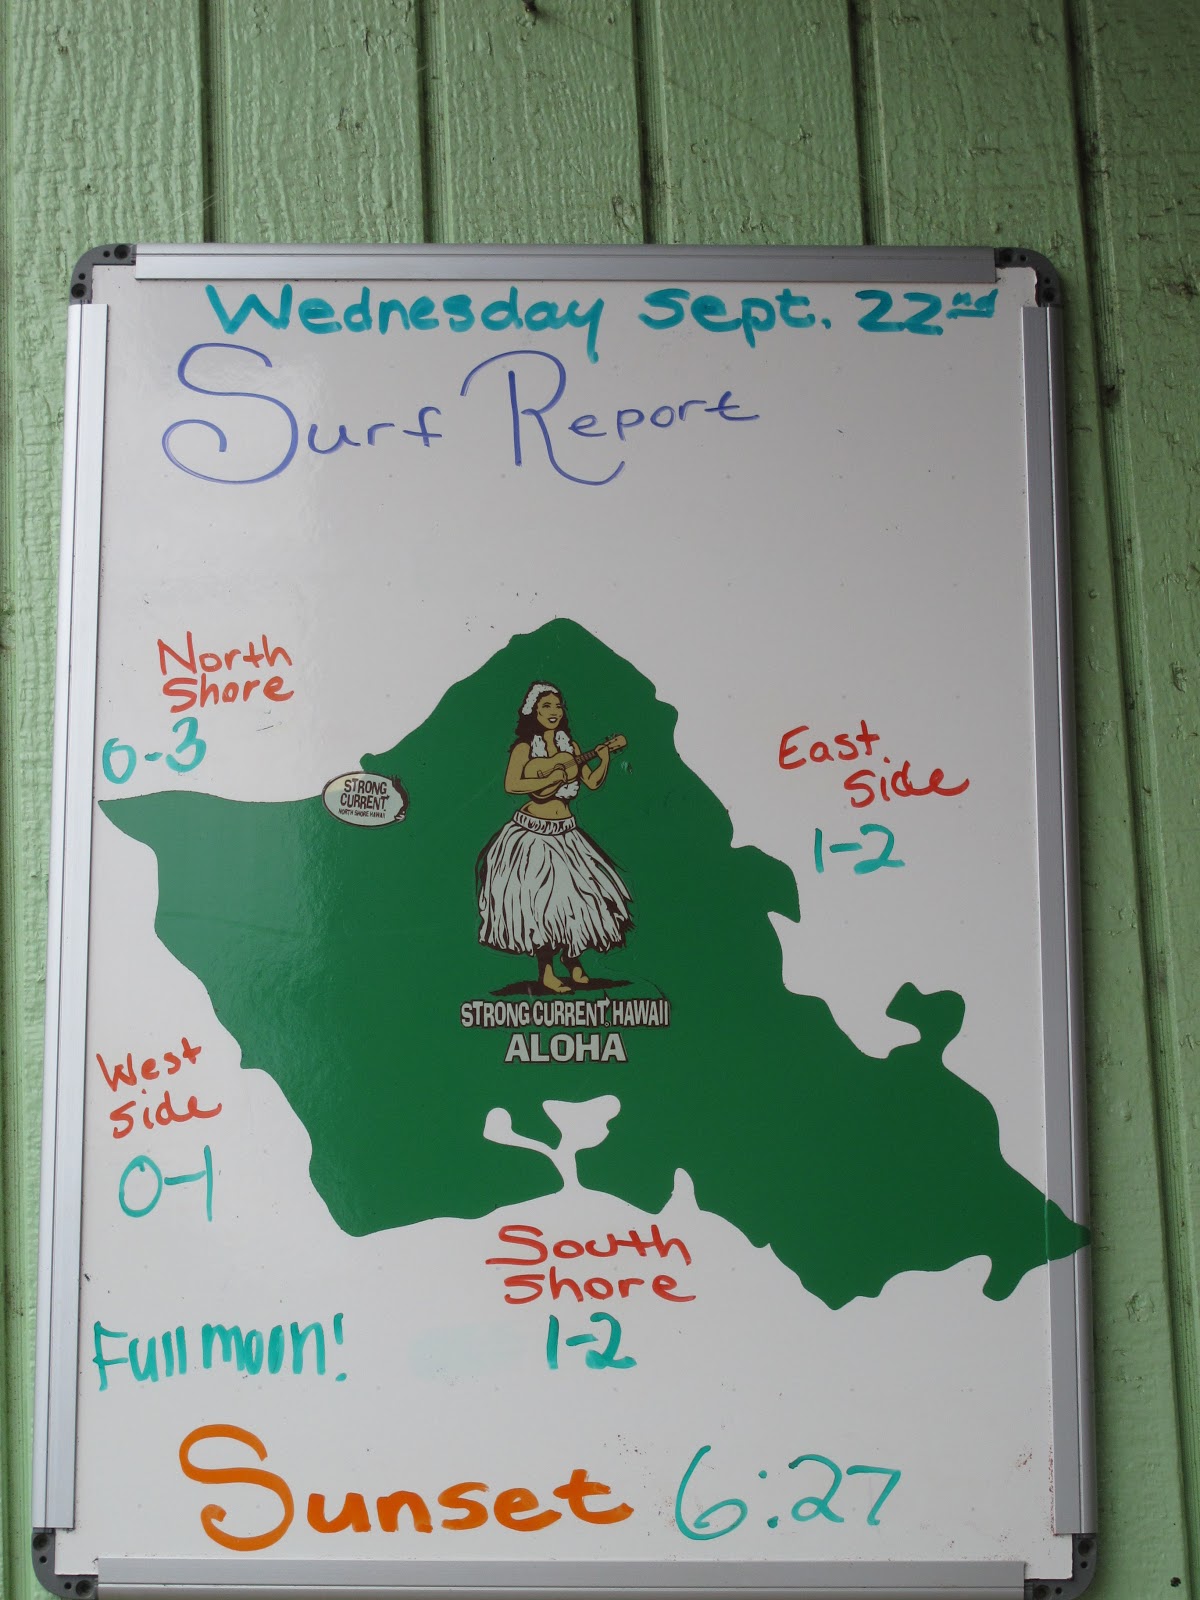 Wednesday Sept. 22nd
Surf Report
North
Shore
0-3
East
Side
1-2
STRONG
CURRENT
NORTH SHORE HAWAII
STRONG CURRENT, HAWAII
ALOHA
West
Side
0-1
South
Shore
1-2
Full moon!
Sunset 6:27